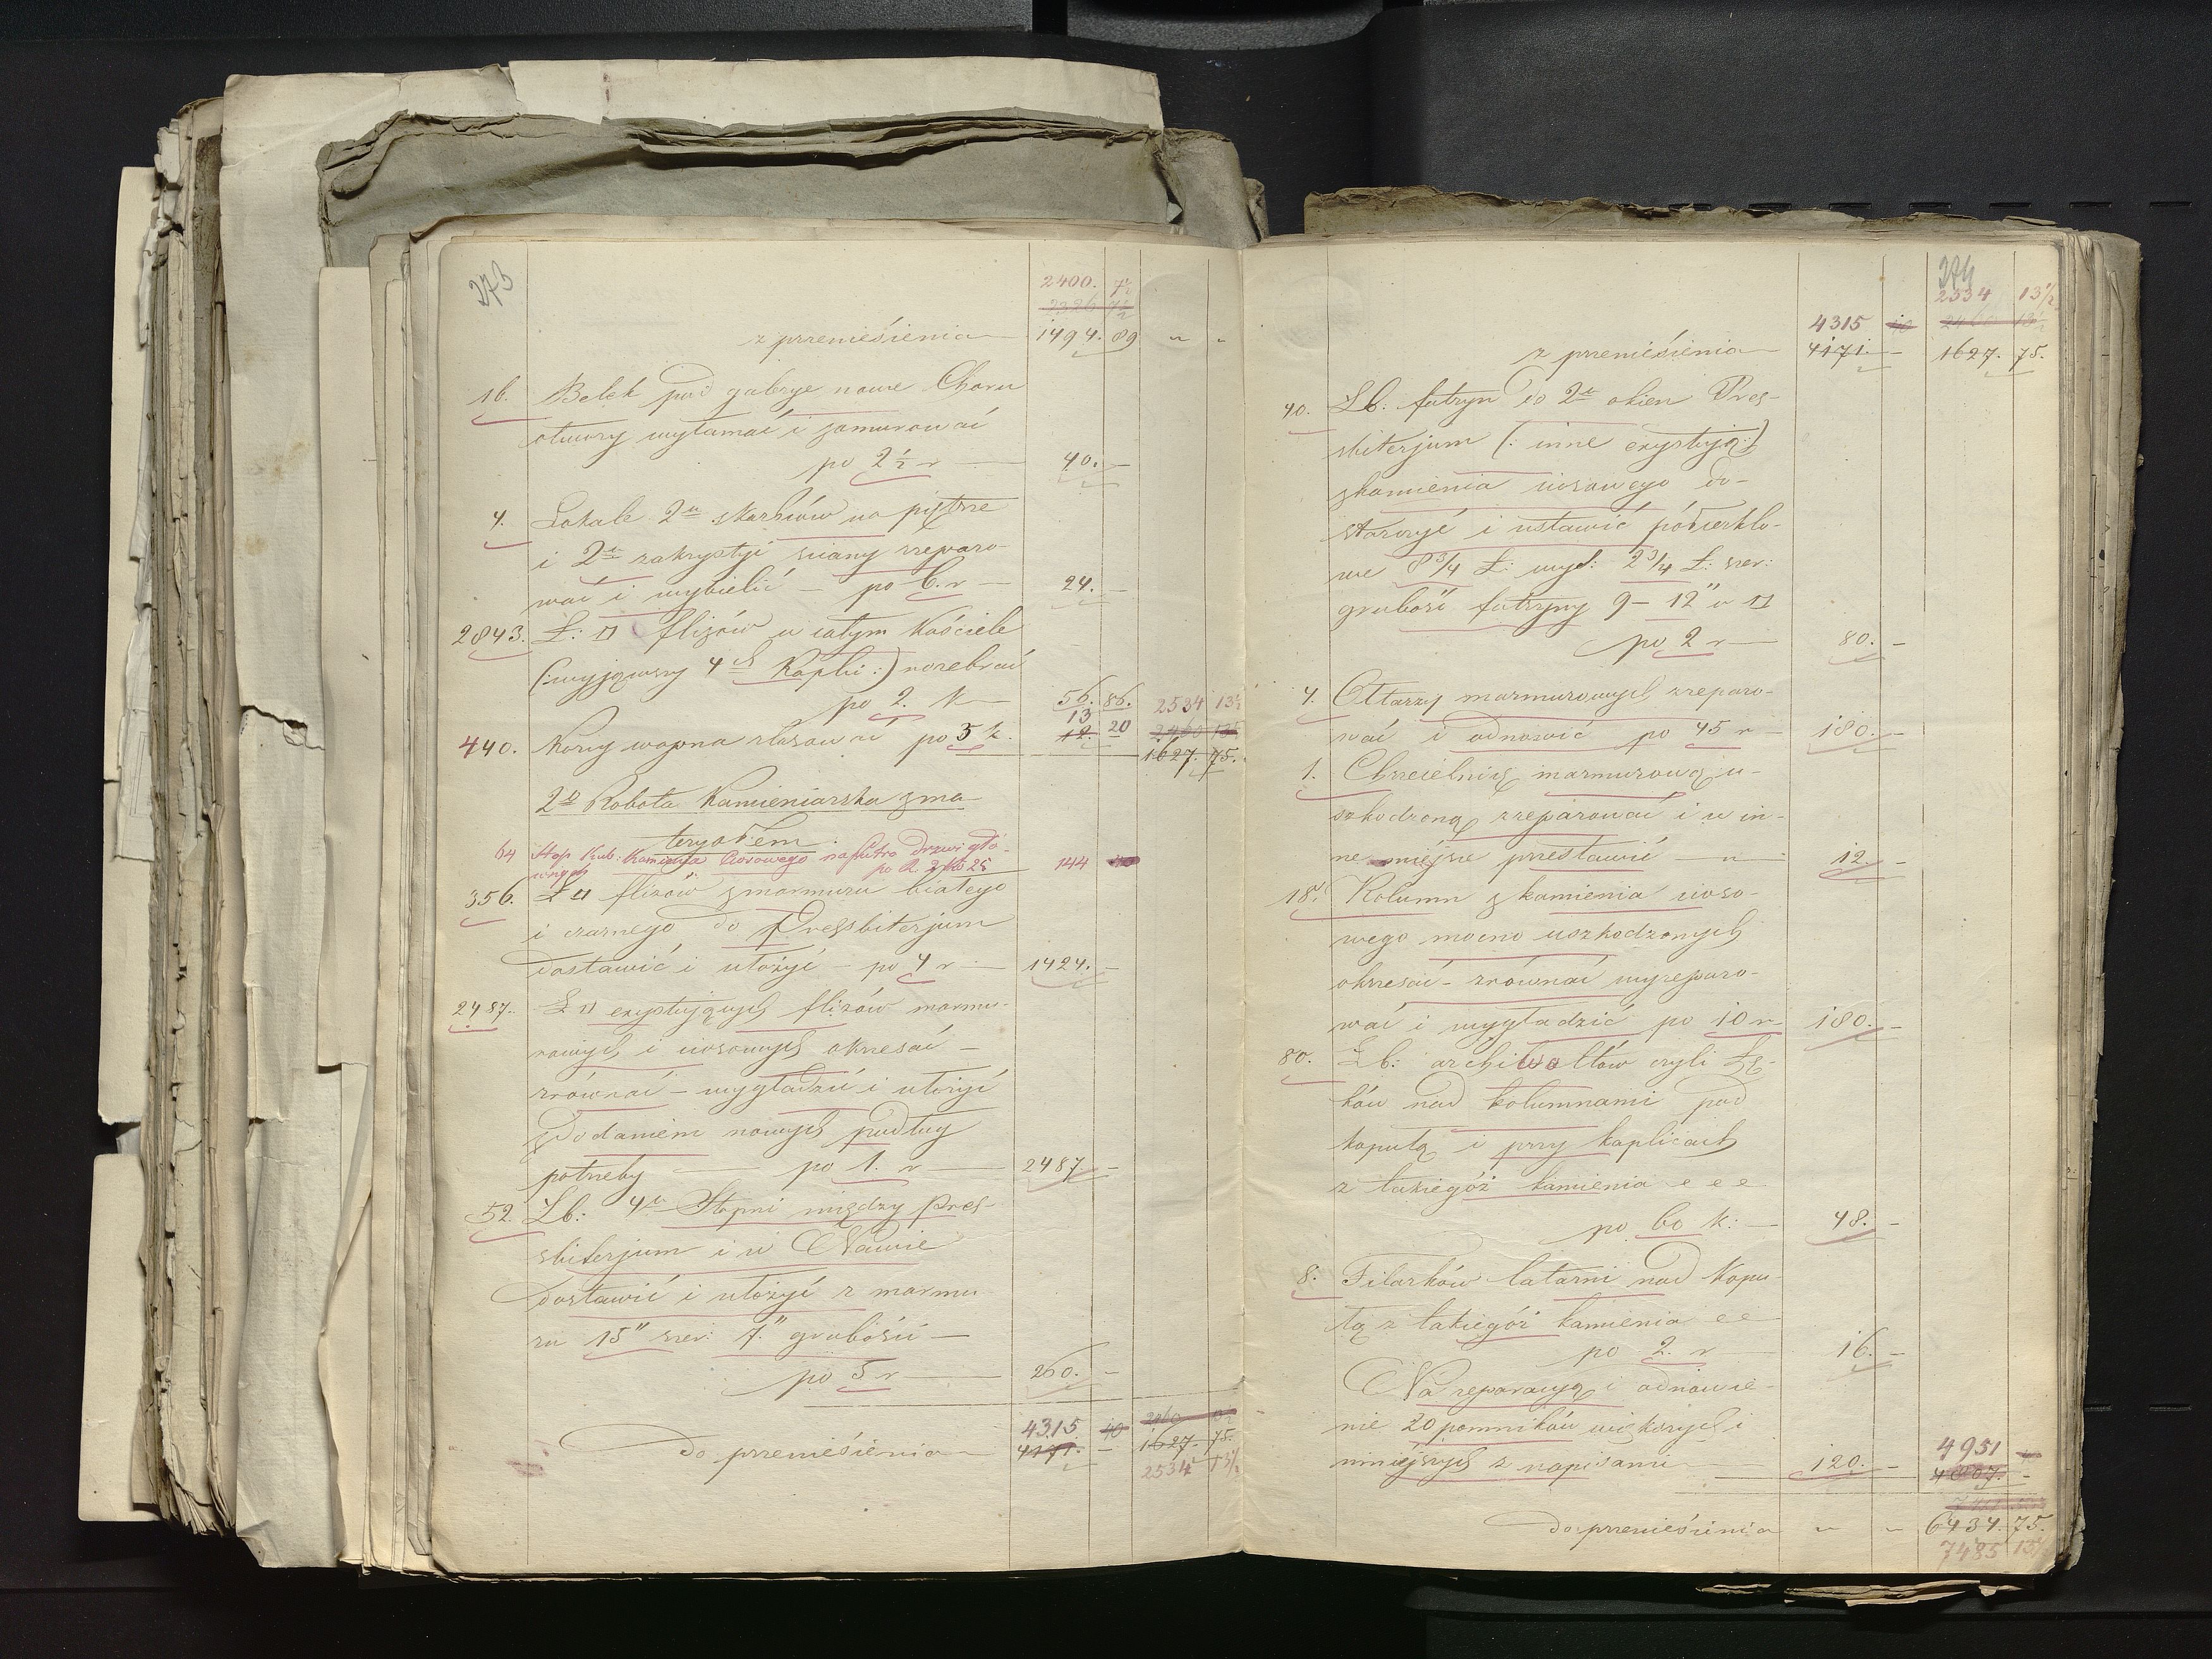 273
2400. 7½
z przeniésienia 1494. 89 " "
16. Belek pod galerye nowe Choru
otwory wyłamać i zamurować
po 2½ r 40. –
4. Lokale 2u skarbców na piętrze
i 2u zakrystyi sciany zreparo-
wać i wybielić – po 6. r – 24. –
2843. Ł: □ flizów w całym Kościele
(:wyjąwszy 4ch Kaplic:) rozebrać
po 2. K 56. 86. 2534 13½
13
440. Korcy wapna zlasować po 3 k. 12. 20
1627. 75.
2o Robota Kamieniarska z ma
teryałem.
64 Stop Kub: Kamienia Ciosowego na futro drzwi głó-
wnych po R. 2 ko 25 144
356. Ł □ flizów z marmuru białego
i czarnego do Presbiterjum
dostawić i ułożyć – po 4 r – 1424. –
2487. Ł □ exystujących flizów marmu-
rowych i ciosowych okrzesać –
zrównać – wygładzić i ułożyć
z dodaniem nowych podług
potrzeby po 1. r 2487. –
52. Łb: 4u Stopni między Pres-
biterjum i w Nawie
dostawić i ułożyć z marmu
ru 15" szer: 7." grubości –
po 5 r 260. –
4315 40
do przeniésienia 4171. – 1627. 75.
2534 13½
274
2534 13½
4315 40
z przeniésienia 4171. – 1627. 75.
40. Łb: futryn do 2u okien Pres-
biterjum (: inne exystują:)
z kamienia ciosowego do-
starczyć i ustawić półcyrklo-
we 8¾ Ł: wys: 2¾ Ł: szer:
grubość futryny 9 – 12" w □
po 2 r 80. –
4. Ołtarzy marmurowych zreparo-
wać i odnowić po 45 r – 180. –
1. Chrzcielnicę marmurową u-
szkodzoną zreparować i w in-
ne miéjsce przestawić – " 12. –
18. Kolumn z kamienia cioso-
wego mocno uszkodzonych
okrzesać – zrównać wyreparo-
wać i wygładzić po 10 r 180. –
80. Łb: archiwoltów czyli Łę-
ków nad kolumnami pod
kopułą i przy kaplicach
z takiegóż kamienia e e e
po 60 k: – 48. –
8. Filarków latarni nad Kopu-
łą z takiegóż kamienia e e
po 2. r 16. –
Na reparacyą i odnowie-
nie 20 pomników większych i
mniéjszych z napisami 120. –
4951
4807. –
do przeniésienia " " 6434. 75.
7485 13½